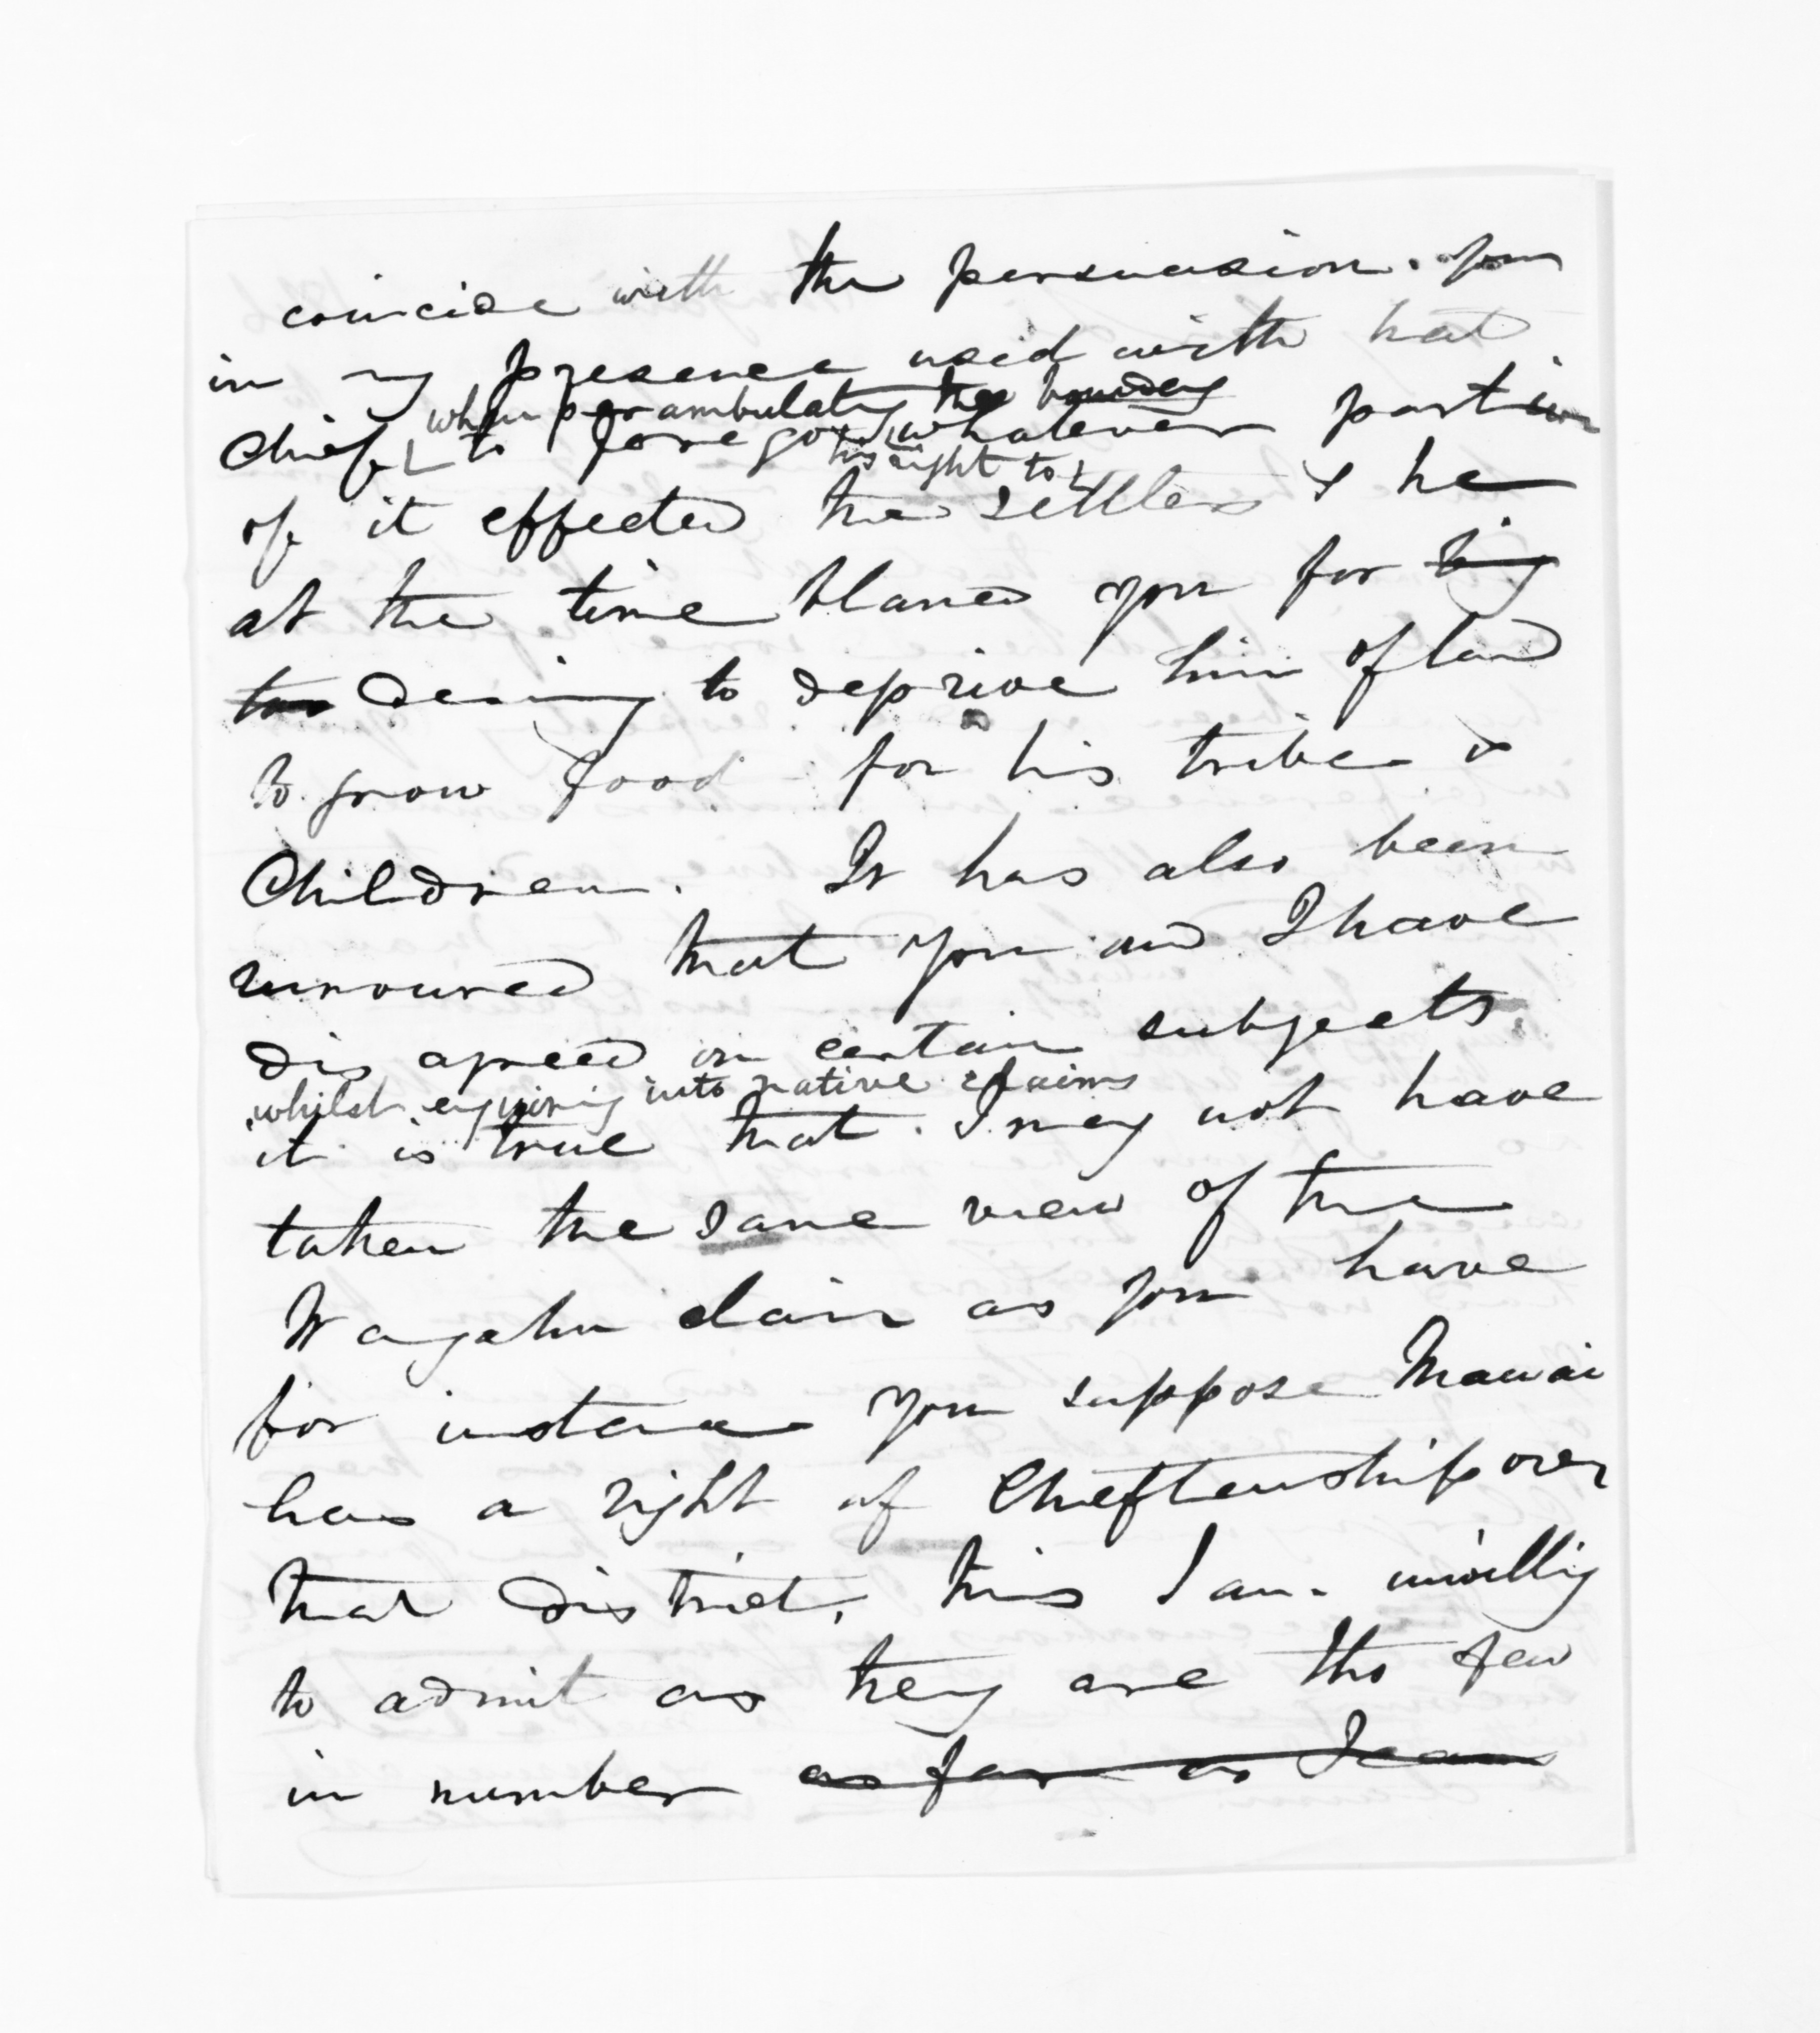 coincide with the persuasion you
in my presence used with that
when perambulating the boundary
Chief, to forego whatever portion
his right to
of it effected the settlers & he
at the time blamed you for
desiring to deprive him of land
to grow food for his tribe &
Children. It has also been
rumoured that you and I have
dis agreed on certain subjects
whilst enquiring into native claims
it is true that I may not have
taken the same view of the
Wagahu claim as you have
for instance you suppose Mawai
has a right of Chieftenship over
that District, this I am unwillig
to admit as they are tho few
in number as far as I can